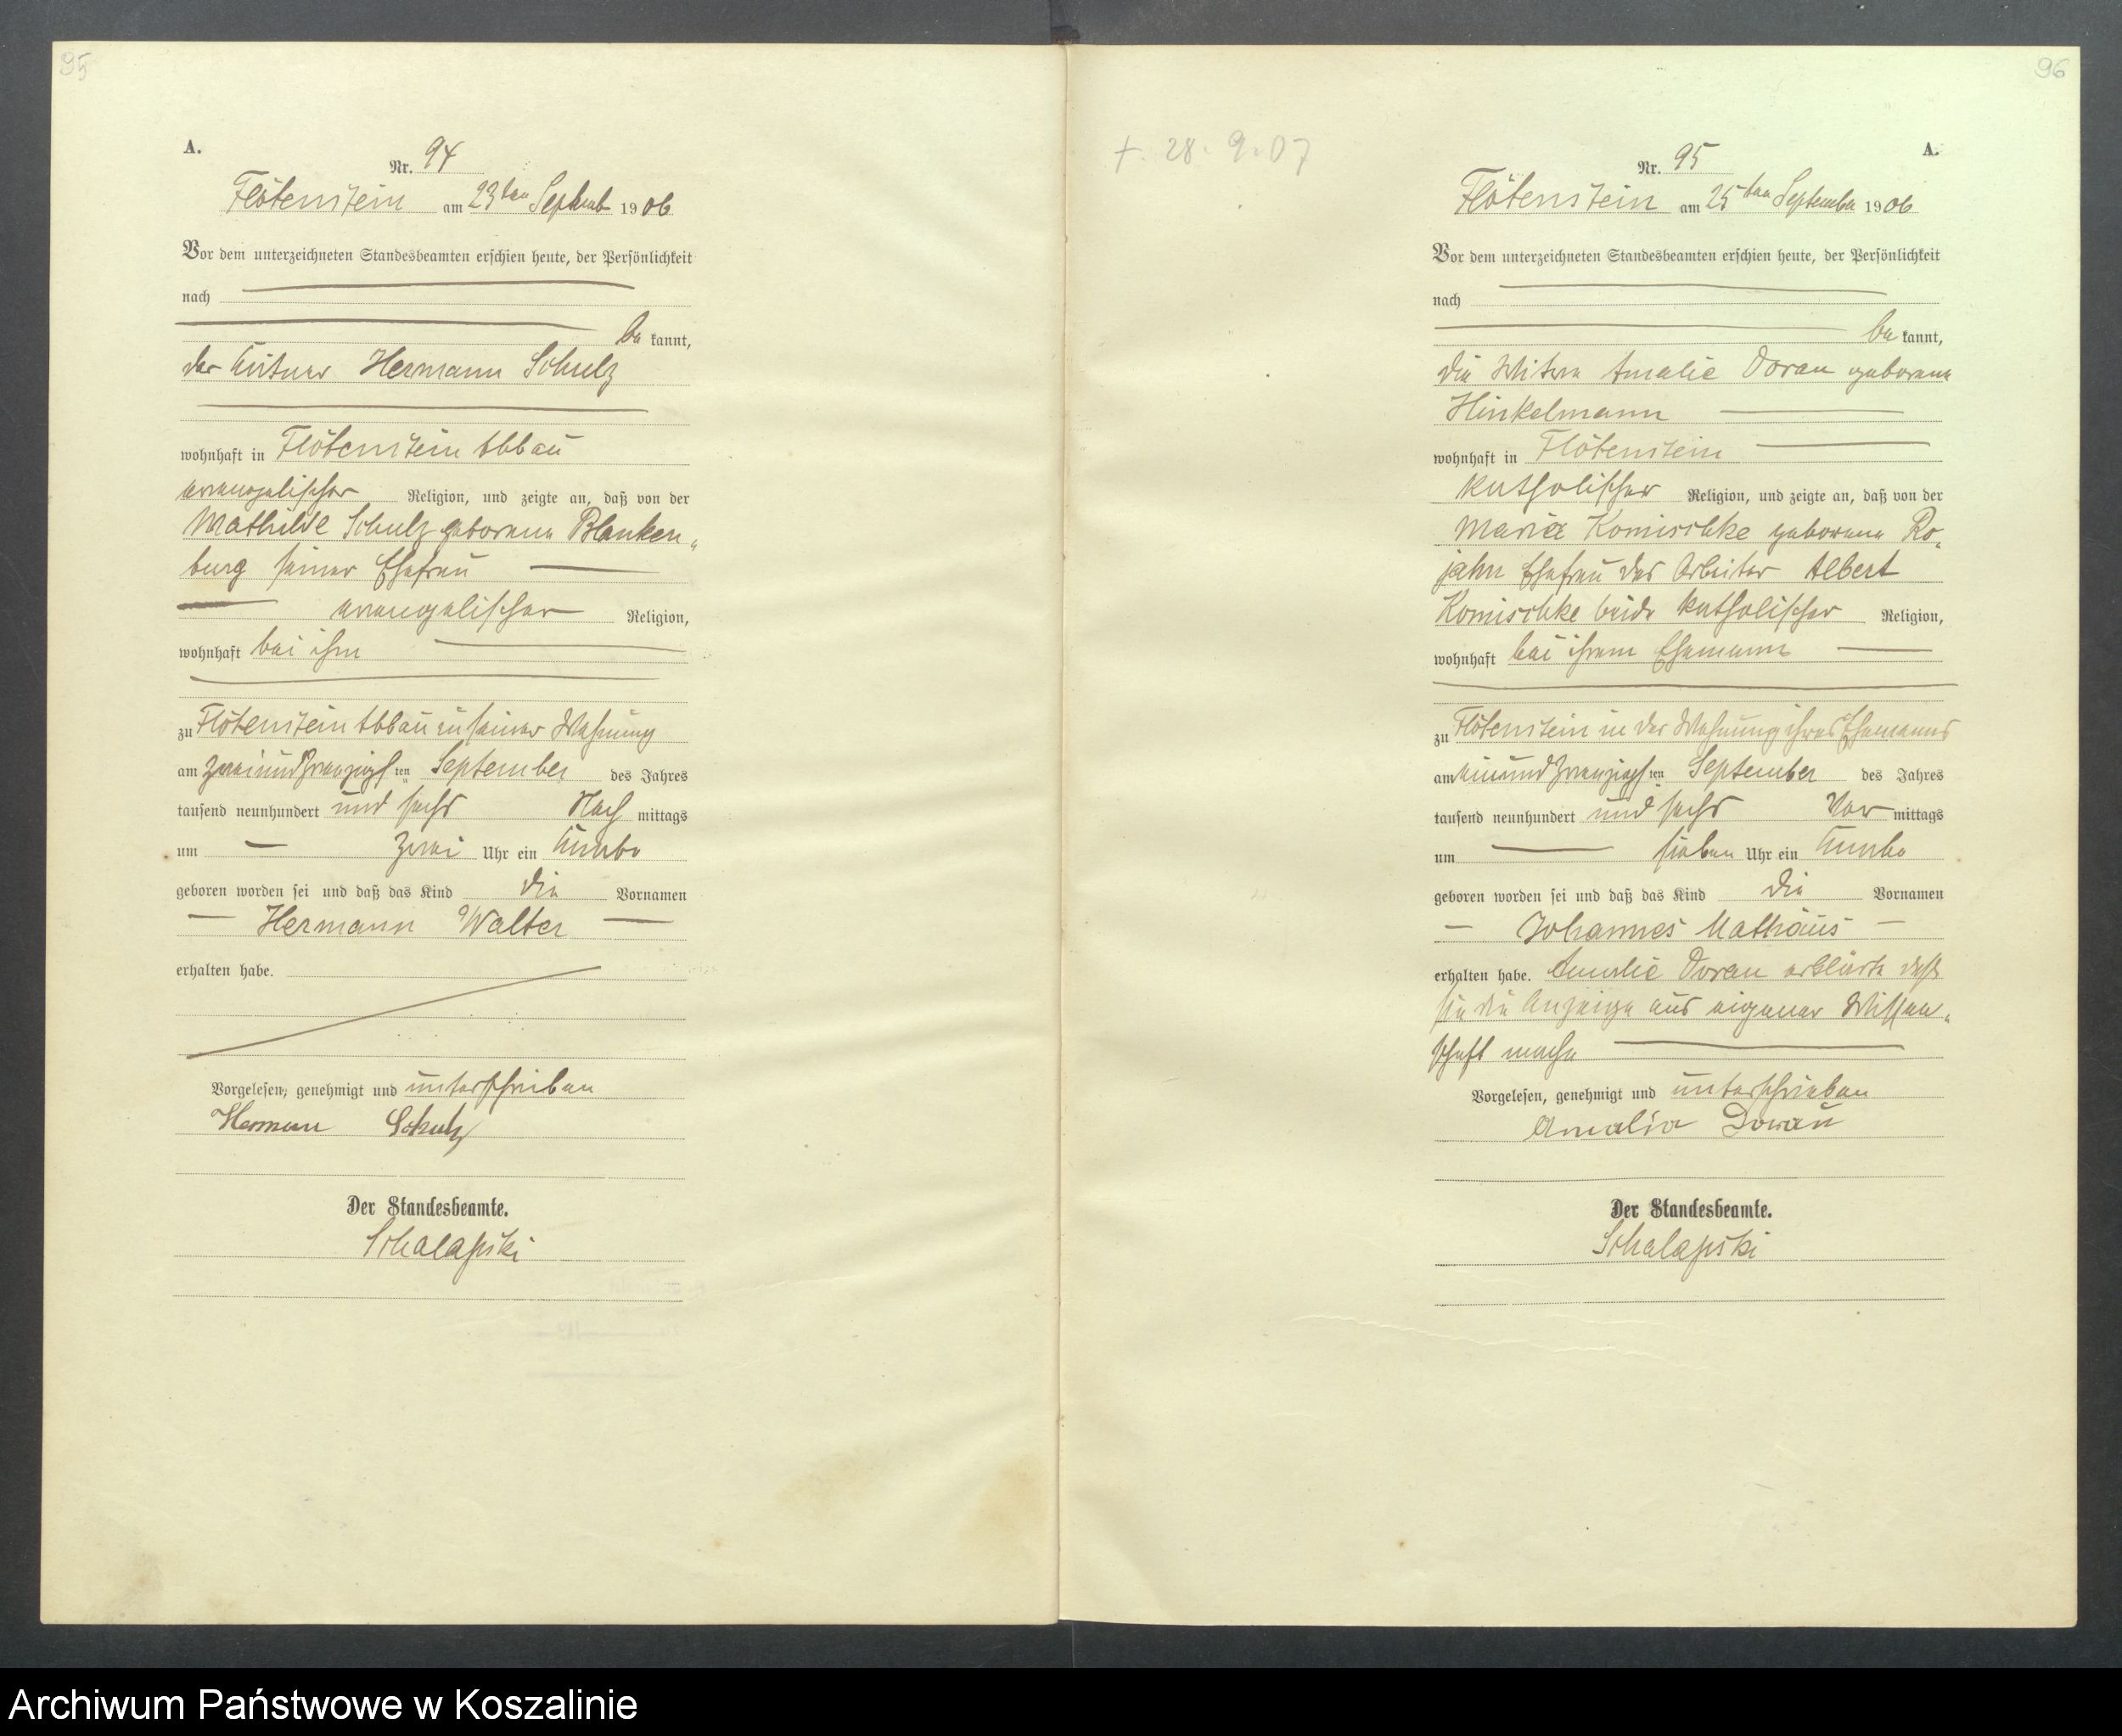 95
A.
Nr. 94
Flötenstein am 23ten Septemb 1906
Vor dem unterzeichneten Standesbeamten erschien heute, der Persönlichkeit
nach
be kannt,
der Hermann Schulz
wohnhaft in Flötenstein Abbau
evangelischer Religion, und zeigte an, daß von der
Mathilde Schulz geborene Blanken-
burg seiner Ehefrau
evangelischer Religion,
wohnhaft bei ihm
zu Flötenstein Abbau in seiner Wohnung
am zweiundzwanzigsten September des Jahres
tausend neunhundert und sechs Nach mittags
um zwei Uhr ein Knabe
geboren worden sei und daß das Kind die Vornamen
Hermann Walter
erhalten habe.
Vorgelesen, genehmigt und unterschrieben
Herman Schulz
Der Standesbeamte.
Schalapski
96
+. 28. 9. 07
A.
Nr. 95
Flötenstein am 25ten September 1906
Vor dem unterzeichneten Standesbeamten erschien heute, der Persönlichkeit
nach
be kannt,
die Witwe Amalie Dorau geborene
Hinkelmann
wohnhaft in Flötenstein
katholischer Religion, und zeigte an, daß von der
Maria Komischke geborene Ro-
jahn Ehefrau des Arbeiter Albert
Komischke beide katholischer Religion,
wohnhaft bei ihrem Ehemann
zu Flötenstein in der Wohnung ihres Ehemanns
am einundzwanzigsten September des Jahres
tausend neunhundert und sechs Vor mittags
um sieben Uhr ein Knabe
geboren worden sei und daß das Kind die Vornamen
Johannes Mathäus
erhalten habe. Amalie Dorau erklärte daß
sie die Anzeige aus eigener Wissen-
schaft mache
Vorgelesen, genehmigt und unterschrieben
Amalie Dorau
Der Standesbeamte.
Schalapski
Archiwum Państwowe w Koszalinie